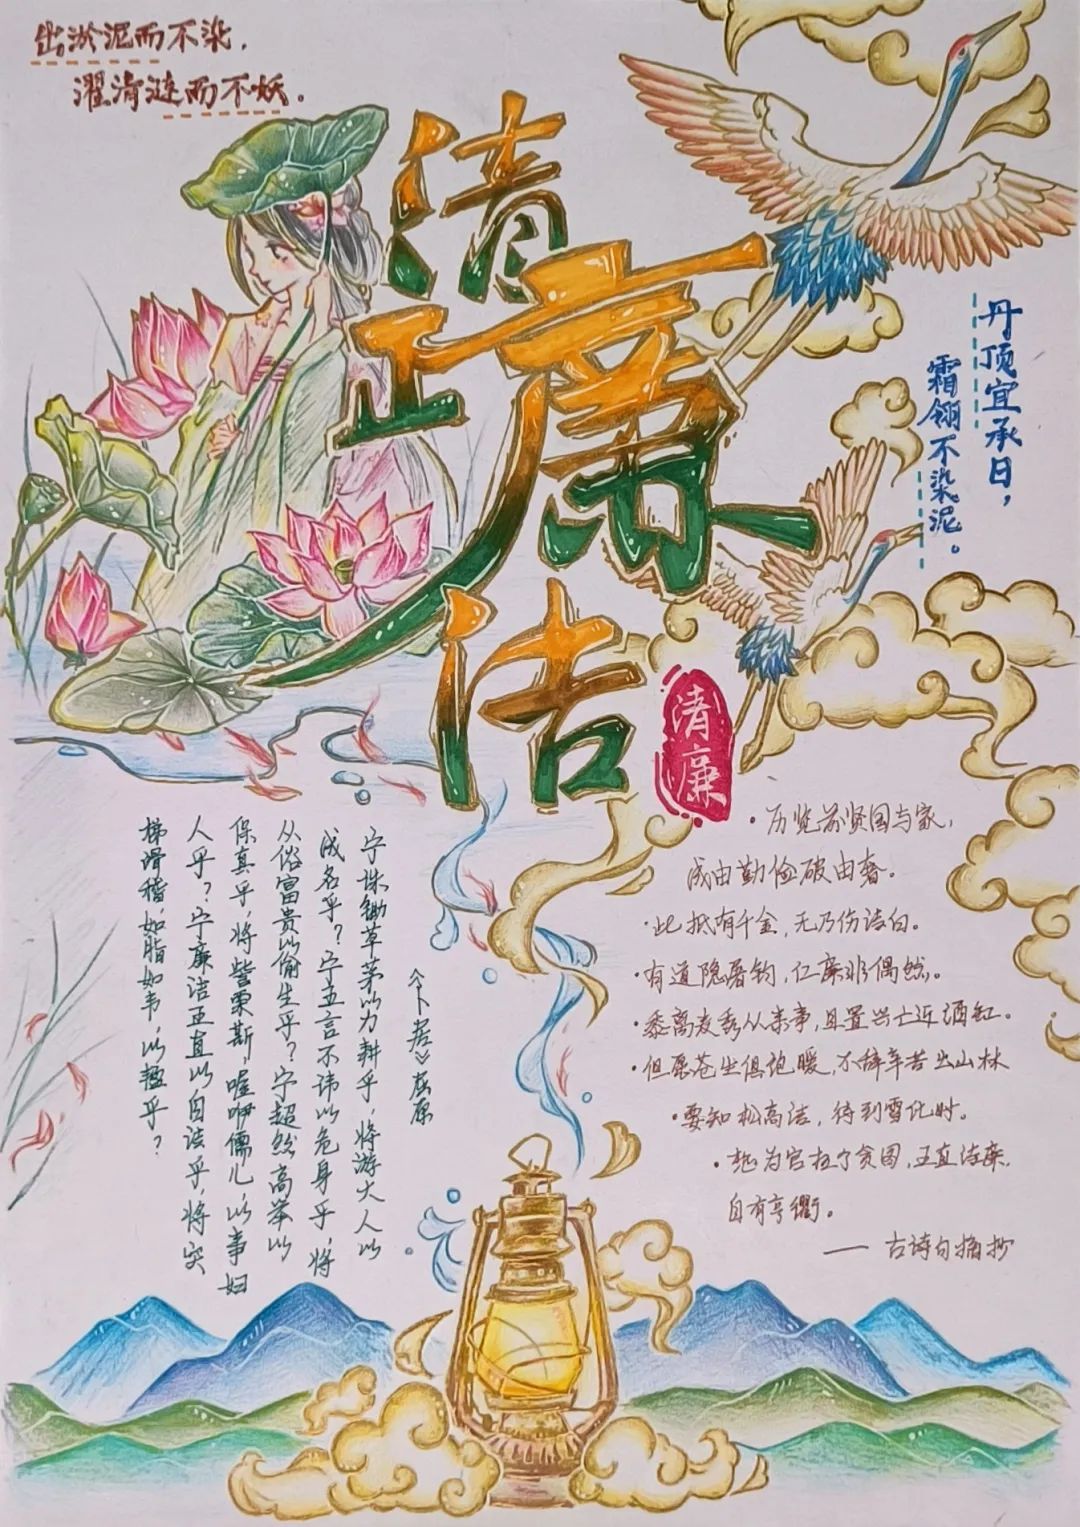 出淤泥而不染，
濯清涟而不妖。
清
正廉
洁
清廉
丹顶宜承日，
霜翎不染泥。
宁诛锄草茅以力耕乎，将游大人以
成名乎？宁正言不讳以危身乎，将
从俗富贵以偷生乎？宁超然高举以
保真乎，将哫訾栗斯，喔咿儒儿，以事妇
人乎？宁廉洁正直以自清乎，将突
梯滑稽，如脂如韦，以楹乎？
《卜居》屈原
·历览前贤国与家，
成由勤俭破由奢。
·此抵有千金，无乃伤清白。
·有道隐屠钓，仁廉非偶然。
·黍离麦秀从来事，且置兴亡近酒缸。
·但愿苍生俱饱暖，不辞辛苦出山林
·要知松高洁，待到雪化时。
·为官 贪图，正直清廉，
自有亨衢。
—— 古诗句摘抄